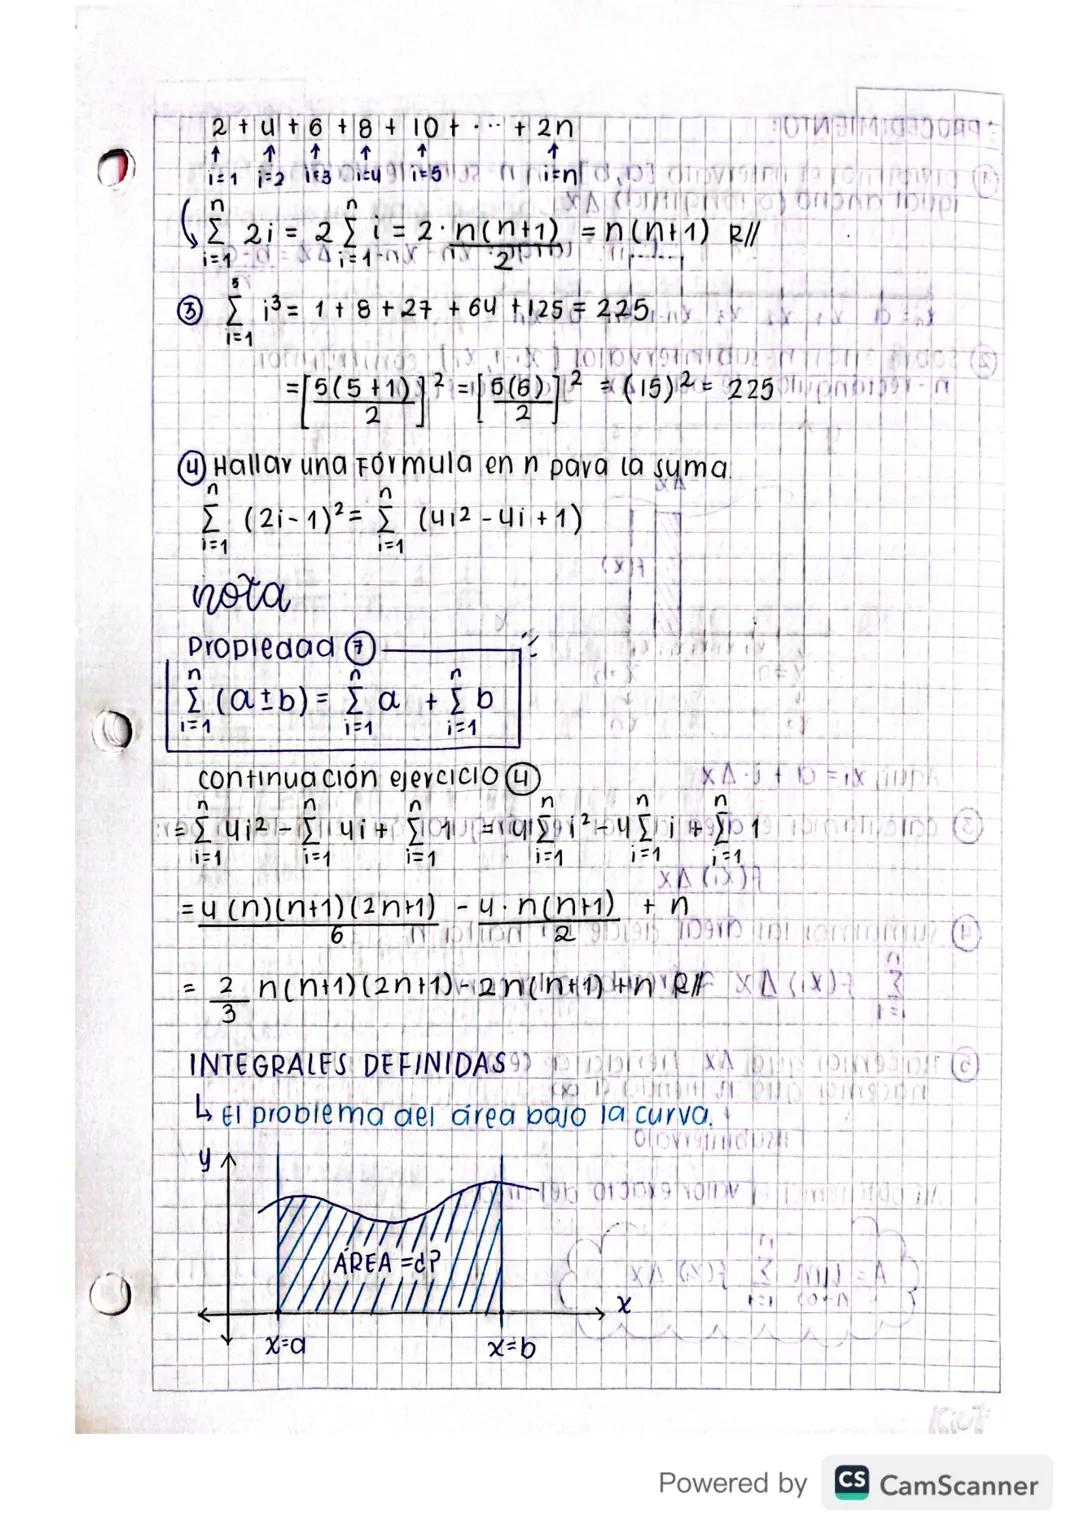 2 + 4 + 6 + 8 + 10 + ... + 2n
↑ ↑ ↑ ↑ ↑ ↑
i=1 i=2 i=3 i=4 i=5 i=n
n n
Σ 2i = 2 Σ i = 2 · n(n+1)/2 = n(n+1) R//
i=1 i=1
5
③ Σ i³ = 1 + 8 + 27 + 64 + 125 = 225
i=1
= [5(5+1)/2]² = [5(6)/2]² = (15)² = 225
④ Hallar una Fórmula en n para la suma.
n n
Σ (2i-1)² = Σ (4i² - 4i + 1)
i=1 i=1
nota
Propiedad ⑦
n n n
Σ (a±b) = Σ a + Σ b
i=1 i=1 i=1
continuación ejercicio ④
n n n n n n
= Σ 4i² - Σ 4i + Σ 1 = 4 Σ i² - 4 Σ i + Σ 1
i=1 i=1 i=1 i=1 i=1 i=1
= 4(n)(n+1)(2n+1)/6 - 4·n(n+1)/2 + n
= 2/3 n(n+1)(2n+1) - 2n(n+1) + n R//
INTEGRALES DEFINIDAS
↳ El problema del área bajo la curva.
y
ÁREA = ¿?
x
x=a x=b
Powered by CS CamScanner